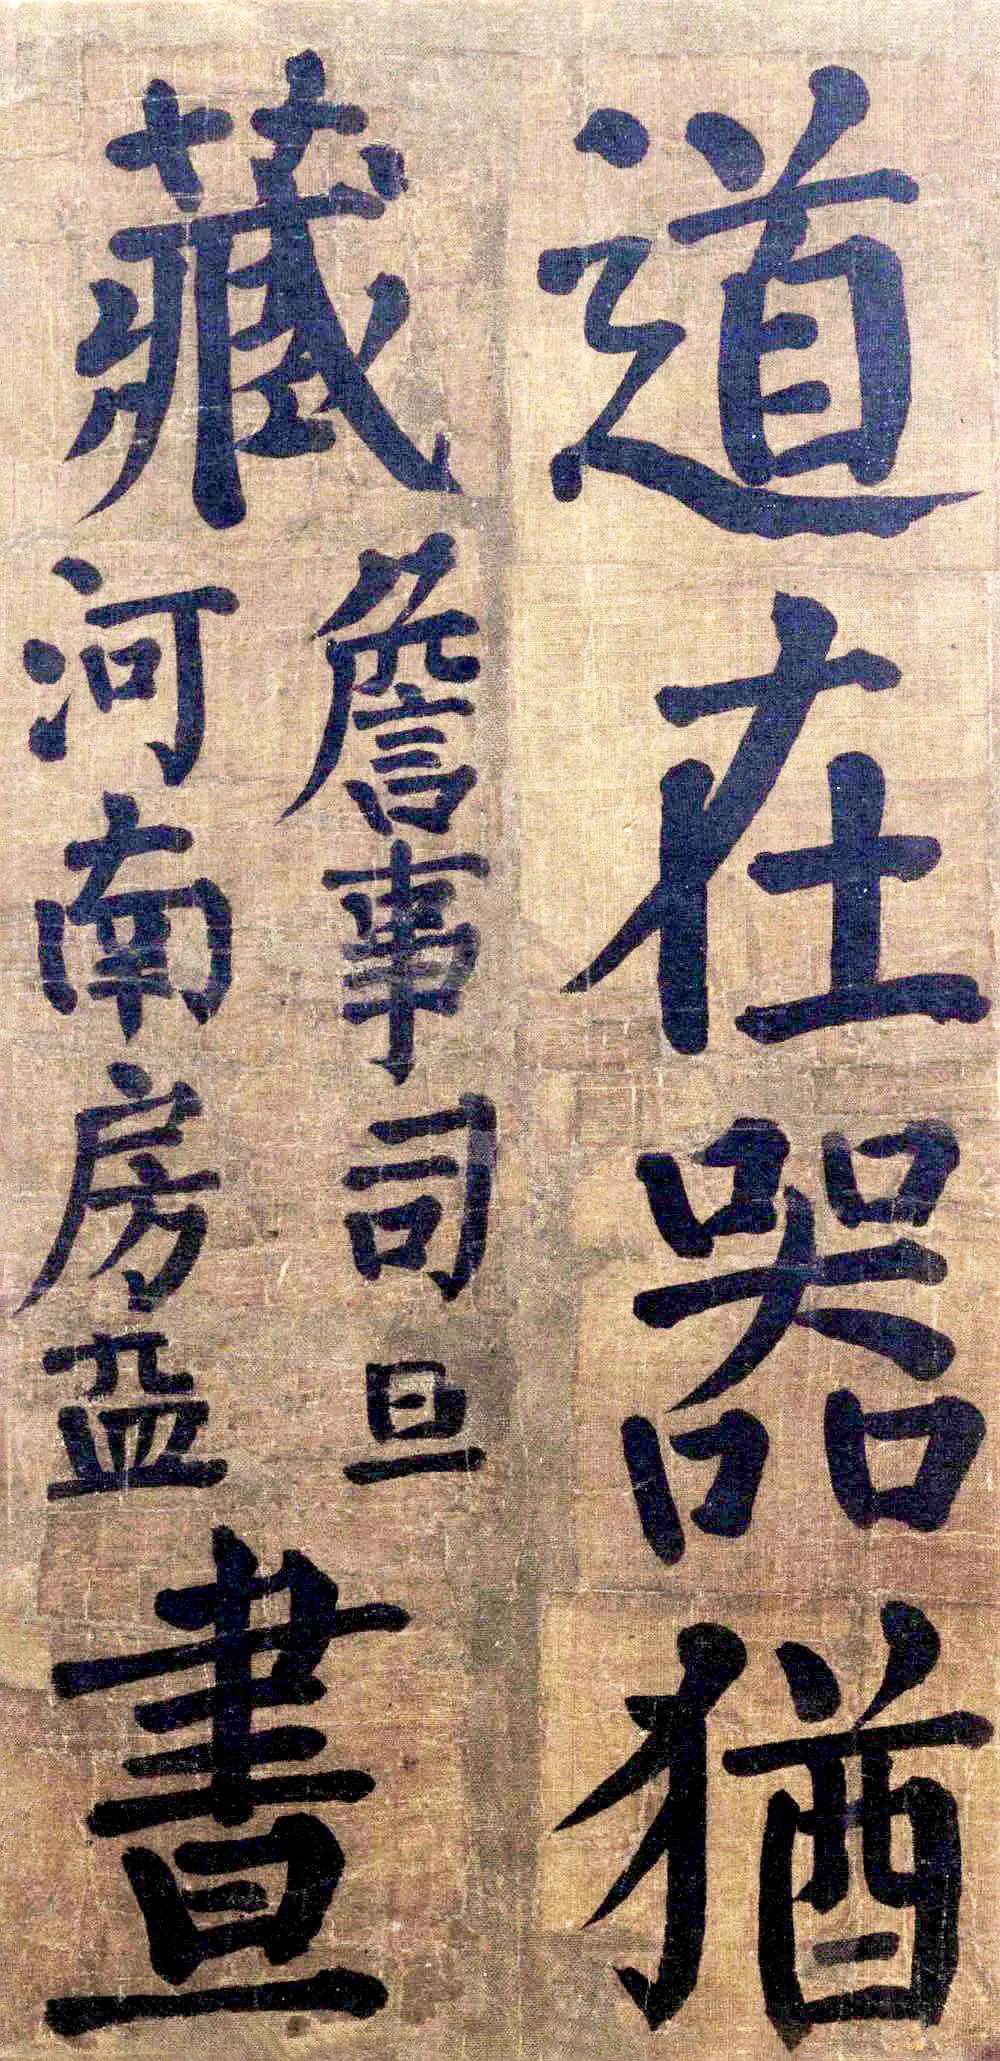 道在器猶
藏
詹事司旦
河南房
晝